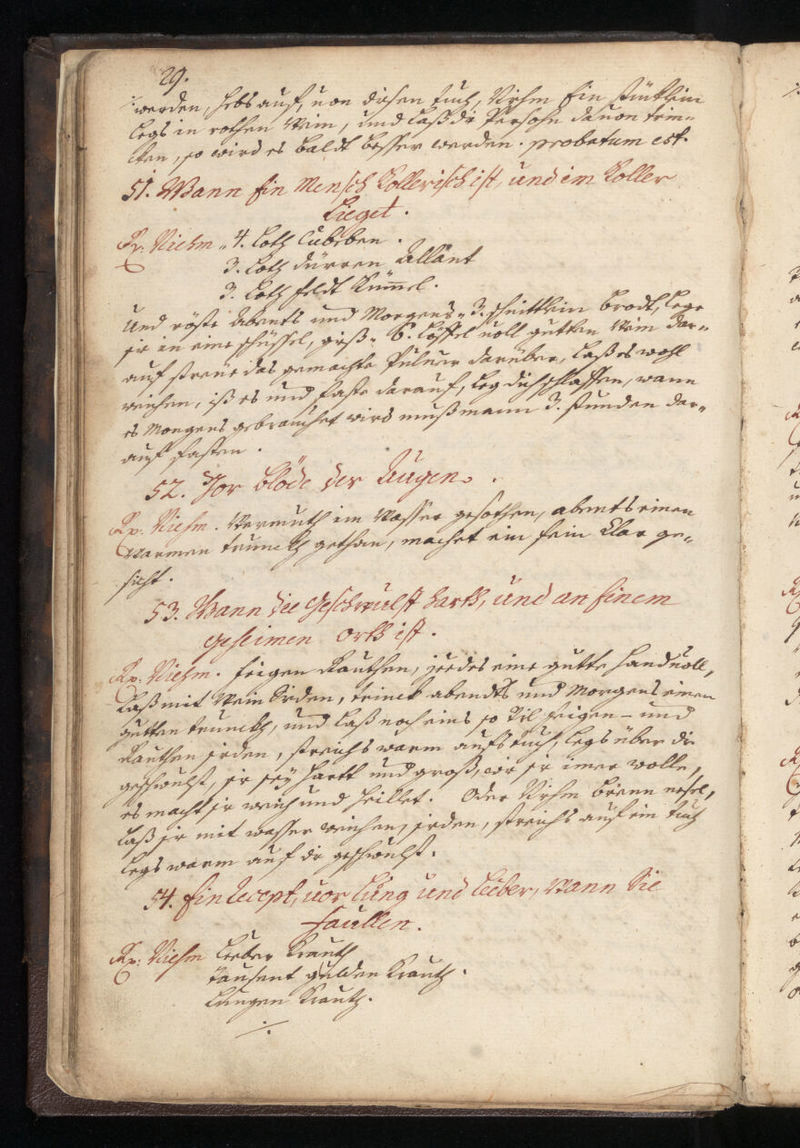 29.
werden, hebs auf, von disen tuch, Nihm Ein stückhlein
legs in rothen Wein, und laß die Persohn davon trin-
cken, so wird es baldt besser werden. probatum est.
51. Wann Ein Mensch Kollerisch ist, und im Koller
Lieget.
Rx. Niehm 4. Loth Cubeben.
3. Loth dürren Allänt
3. Loth feldt Kümel.
Und röste Abents und Morgens 3. schnittlein brodt, lege
sie in eine schüssel, gieß 6. Löffel voll gutten Wein dar-
auf streue das gemachte Pulver darüber, laß es wohl
weichen, iß es und faste darauf, leg dich schlaffen, wann
es Morgens gebrauchet wird muß mann 3. stunden dar-
auf fasten.
52. Vor blöde der Augen.
Rx. Niehm. Wermuth im Wasser gesothen, abents einen
Warmen trunckh gethan, machet ein fein klar ge-
sicht.
53. Wann die Geschwulst hartt, und an Einem
geheimen Ortt ist.
Rx. Niehm. feigen Rauthen, jeedes eine gutte handvoll,
laß mit Wein sieden, trinck abendts und Morgens einen
gutten trunckh, und laß noch eins so Vil feigen- und
Rauthen sieden, streichs warm aufs tuch, legs über die
geschwulst, sie sey hartt und groß, wie sie imer wolle,
es macht sie weich und heillet. Oder Nihm brenn nesel,
laß sie mit wasser weichen, sieden, streichs auf ein tuch
legs warm auf die geschwulst.
54. Ein Recept, vor Lung und Leeber, Wann Sie
faullen.
Rx: Niehm Leeber Krauth
tausent gulden Krauth.
Lungen Krauth.
./.